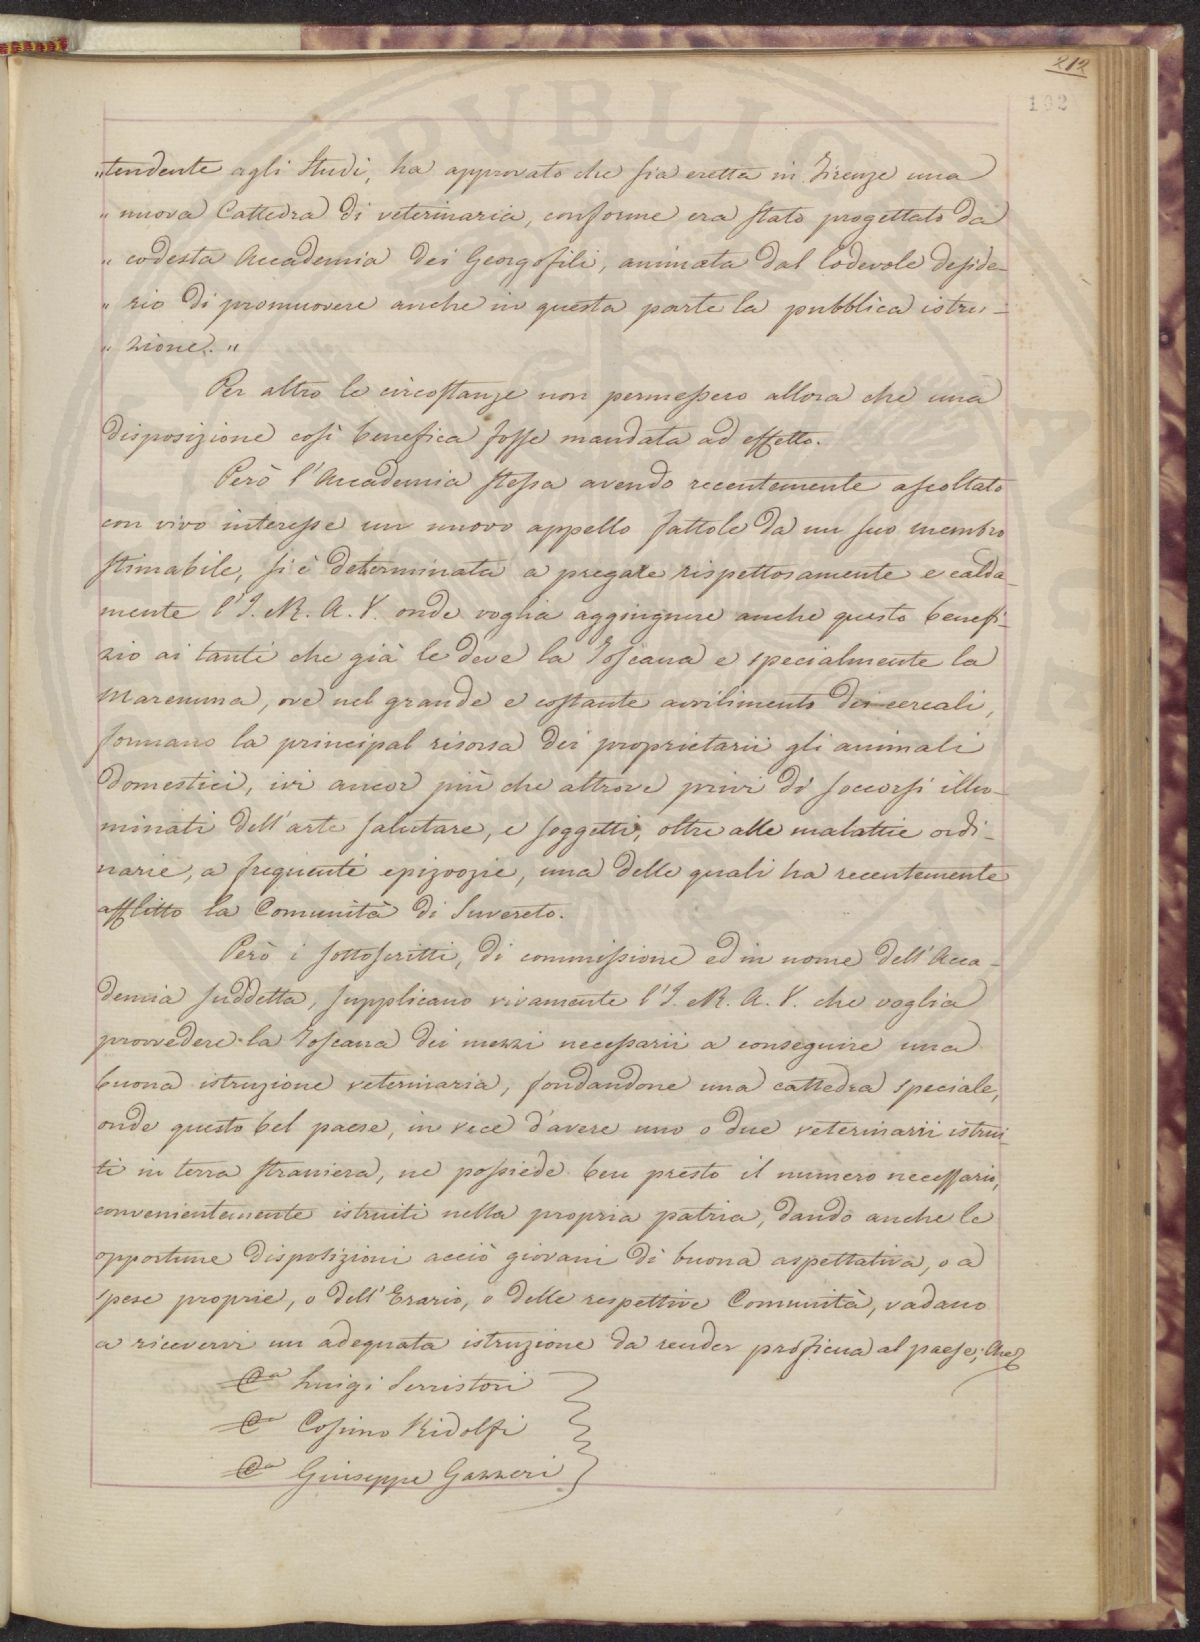 212
192
„tendente agli Studi, ha approvato che sia eretta in Firenze una
„ nuova Cattedra di veterinaria, conforme era stato progettato da
„ codesta Accademia dei Georgofili, animata dal lodevole deside-
„ rio di promuovere anche in questa parte la pubblica istru-
„ zione. „
Per altro le circostanze non permessero allora che una
disposizione così benefica fosse mandata ad effetto.
Però l'Accademia stessa avendo recentemente ascoltato
con vivo interesse un nuovo appello fattole da un suo membro
stimabile, si è determinata a pregare rispettosamente e calda-
mente l'I. e R. A. V. onde voglia aggiugnere anche questo benefi-
zio ai tanti che già le deve la Toscana e specialmente la
Maremma, ove nel grande e costante avvilimento dei cereali,
formano la principal risorsa dei proprietarii gli animali
domestici, ivi ancor più che altrove privi di soccorsi illu-
minati dell'arte salutare, e soggetti, oltre alle malattie ordi-
narie, a frequenti epizoozie, una delle quali ha recentemente
afflitto la Comunità di Suvereto.
Però i sottoscritti, di commissione ed in nome dell'Acca-
demia suddetta, supplicano vivamente l'I. e R. A. V. che voglia
provvedere la Toscana dei mezzi necessarii a conseguire una
buona istruzione veterinaria, fondandone una cattedra speciale,
onde questo bel paese, in vece d'avere uno o due veterinarii istrui-
ti in terra straniera, ne possiede ben presto il numero necessario,
convenientemente istruiti nella propria patria, dando anche le
opportune disposizioni acciò giovani di buona aspettativa, o a
spese proprie, o dell'Erario, o delle respettive Comunità, vadano
a ricevervi un adeguata istruzione da render proficua al paese; Che
Luigi Serristori
Cosimo Ridolfi
Giuseppe Gazzeri